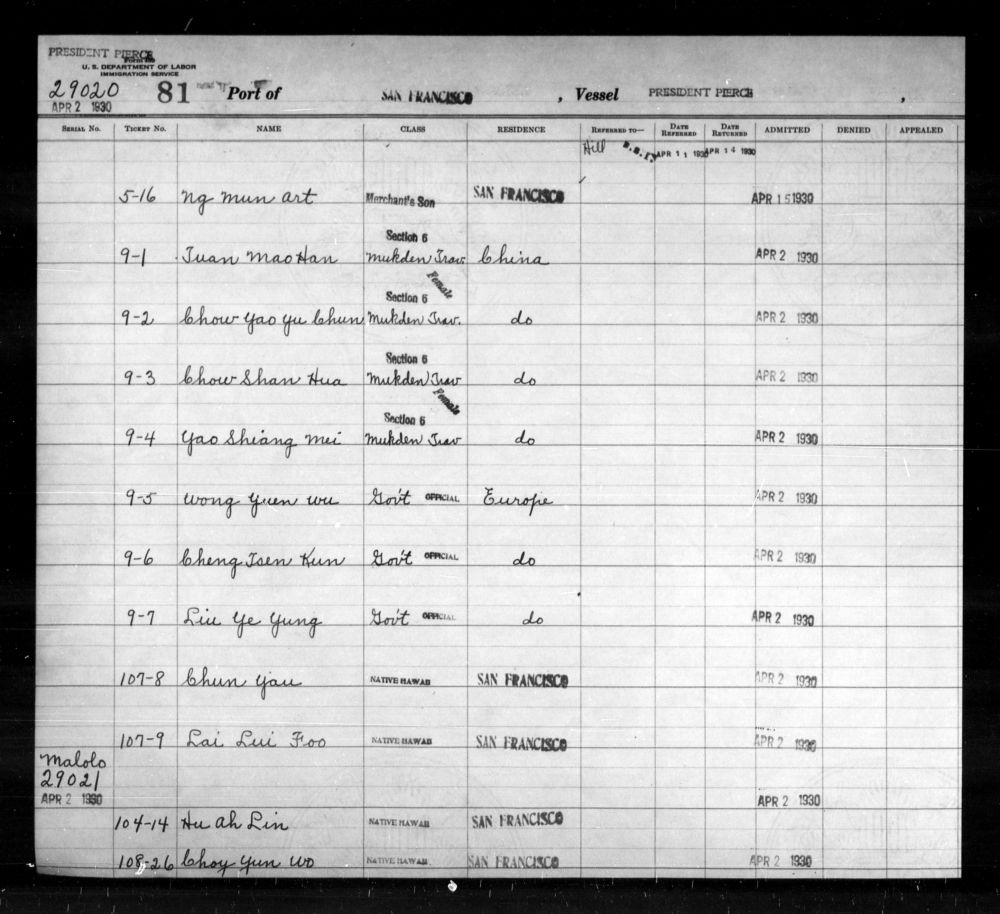 PRESIDENT PIERCE
U. S. DEPARTMENT OF LABOR
IMMIGRATION SERVICE
29020 81 Port of SAN FRANCISCO , Vessel PRESIDENT PIERCE ,
APR 2 1930
SERIAL NO. TICKET NO. NAME CLASS RESIDENCE REFERRED TO— DATE REFERRED DATE RETURNED ADMITTED DENIED APPEALED
Hill B.S.I. APR 11 1930 APR 14 1930
5-16 Ng Mun Art Merchant's Son SAN FRANCISCO APR 15 1930
Section 6
9-1 Tuan Mao Han Mukden Trav. China APR 2 1930
Section 6 Female
9-2 Chow Yao Yu Chun Mukden Trav. do APR 2 1930
Section 6
9-3 Chow Shan Hua Mukden Trav do APR 2 1930
Section 6 Female
9-4 Yao Shiang Mei Mukden Trav do APR 2 1930
9-5 Wong Yuen Wu Gov't OFFICIAL Europe APR 2 1930
9-6 Cheng Tsen Kun Gov't OFFICIAL do APR 2 1930
9-7 Liu Ye Yung Gov't OFFICIAL do APR 2 1930
107-8 Chun Yau NATIVE HAWAII SAN FRANCISCO APR 2 1930
107-9 Lai Lui Foo NATIVE HAWAII SAN FRANCISCO APR 2 1930
Malolo
29021
APR 2 1930 APR 2 1930
104-14 Hu Ah Lin NATIVE HAWAII SAN FRANCISCO
108-26 Choy Yun Wo NATIVE HAWAII SAN FRANCISCO APR 2 1930